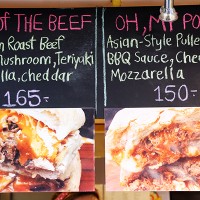 OF THE BEEF
Roast Beef
ushroom, Teriyaki
lla, cheddar
165.-
OH, MY PO
Asian-Style Pulle
BBQ Sauce, Che
Mozzarella
150.-